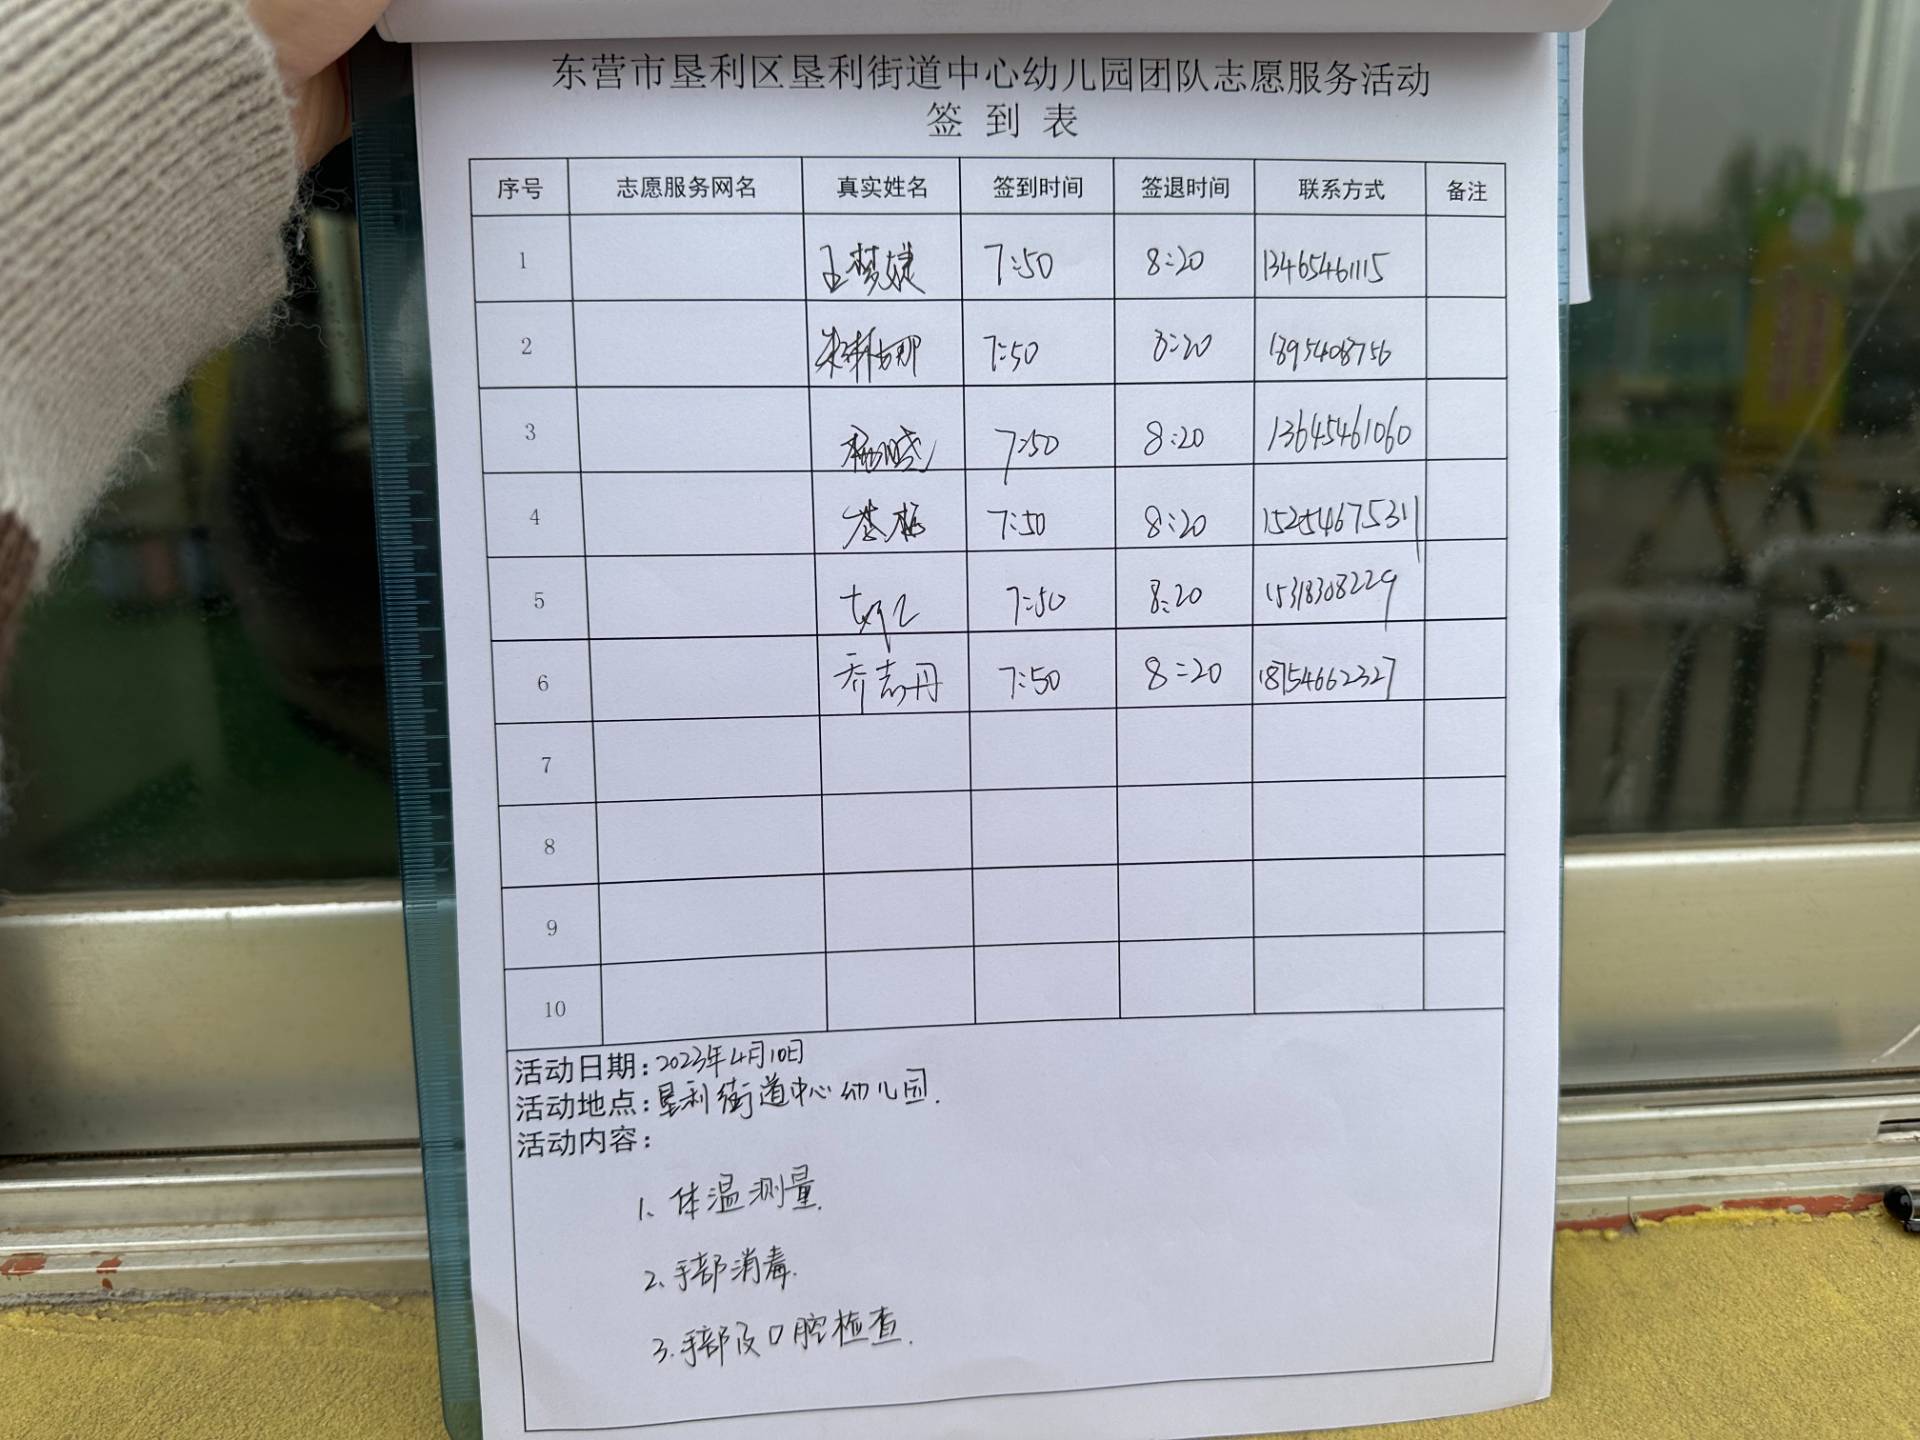 东营市垦利区垦利街道中心幼儿园团队志愿服务活动
签 到 表
序号 志愿服务网名 真实姓名 签到时间 签退时间 联系方式 备注
1 王梦婕 7:50 8:20 13465461115
2 7:50 8:20 1395408756
3 杨晓 7:50 8:20 13645461060
4 7:50 8:20 15254675311
5 7:50 8:20 15318308229
6 乔志丹 7:50 8:20 18754662327
7
8
9
10
活动日期:2023年4月10日
活动地点:垦利街道中心幼儿园.
活动内容:
1、体温测量.
2、手部消毒.
3.手部及口腔检查.